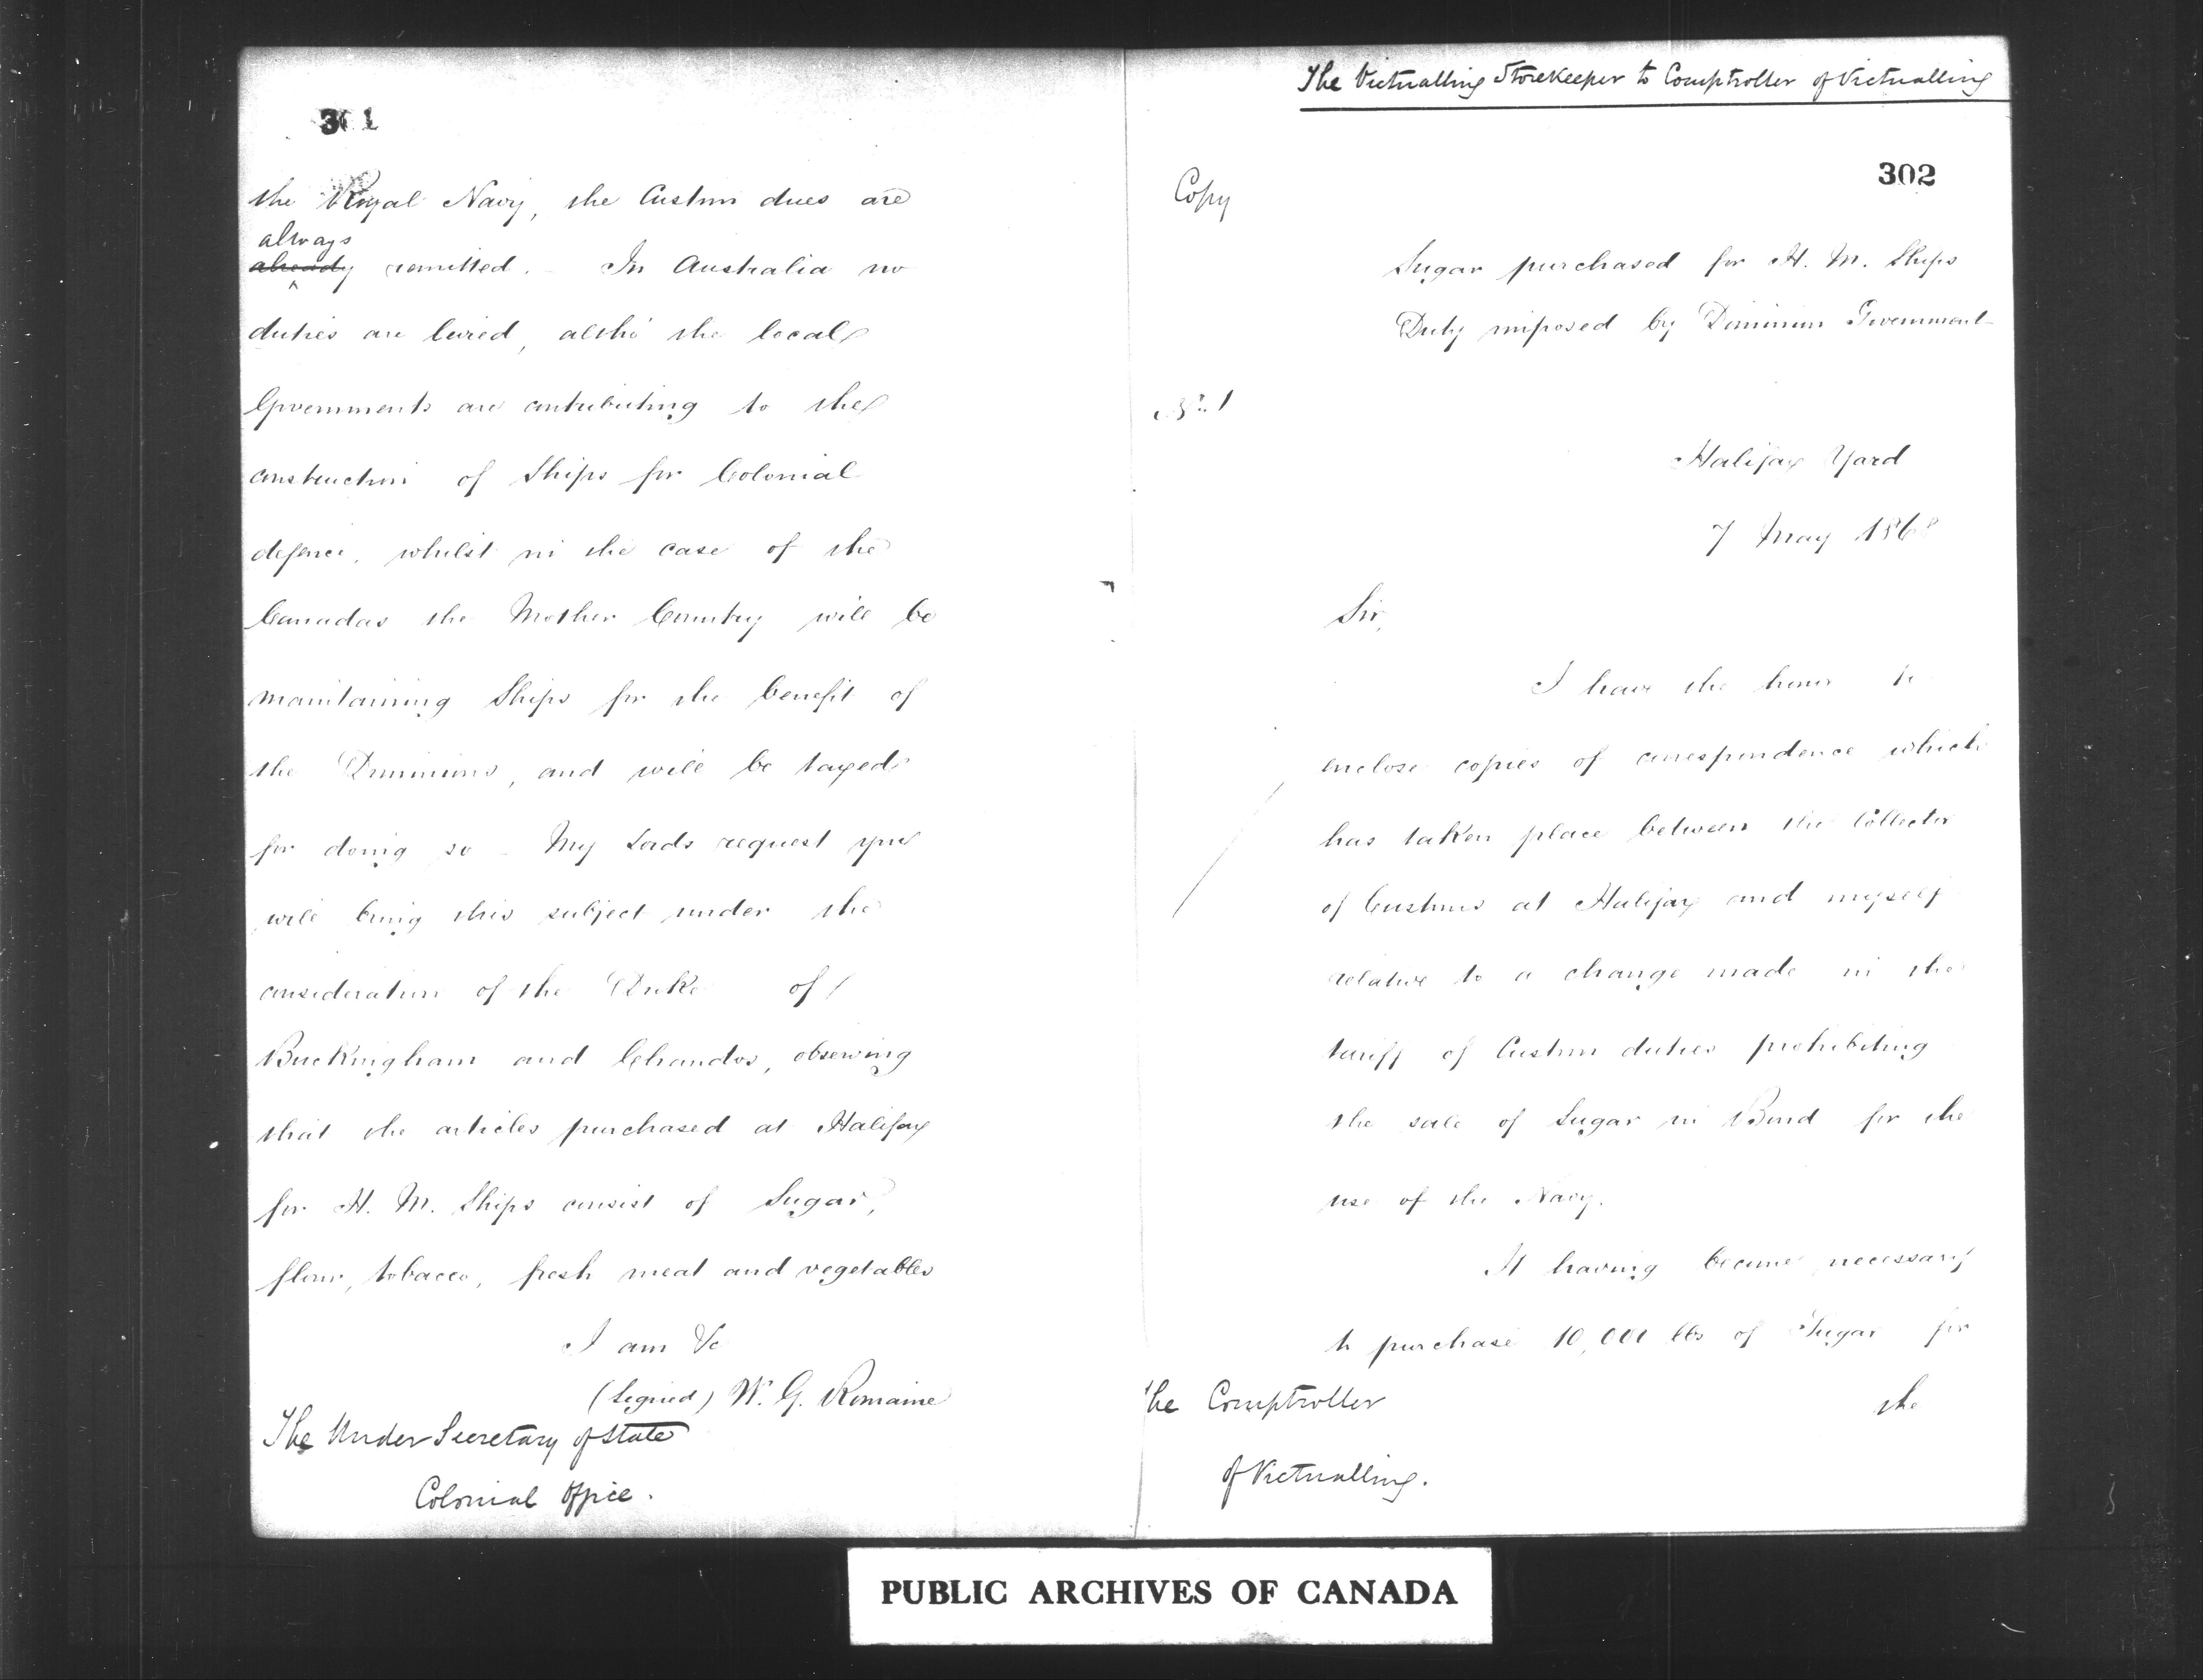 301
the Royal Navy, the Custom dues are
always
already remitted. - In Australia no
duties are levied, altho' the local
Governments are contributing to the
construction of Ships for Colonial
defence, whilst in the case of the
Canadas the Mother Country will be
maintaining Ships for the benefit of
the Dominions, and will be taxed
for doing so - My Lords request you
will bring this subject under the
consideration of the Duke of
Buckingham and Chandos, observing
that the articles purchased at Halifax
for H. M. Ships consist of Sugar,
flour, tobacco, fresh meat and vegetables
I am &c
(Signed) W. G. Romaine
The Under Secretary of State
Colonial Office.
The Victualling Storekeeper to Comptroller of Victualling
302
Copy
Sugar purchased for H. M. Ships
Duty imposed by Dominion Government
No. 1
Halifax Yard
7 May 1868
Sir,
I have the honor to
enclose copies of correspondence which
has taken place between the Collector
of Customs at Halifax and myself
relative to a change made in the
tariff of Custom duties prohibiting
the sale of Sugar in Bond for the
use of the Navy.
It having become necessary
to purchase 10,000 lbs of Sugar for
the
The Comptroller
of Victualling.
PUBLIC ARCHIVES OF CANADA